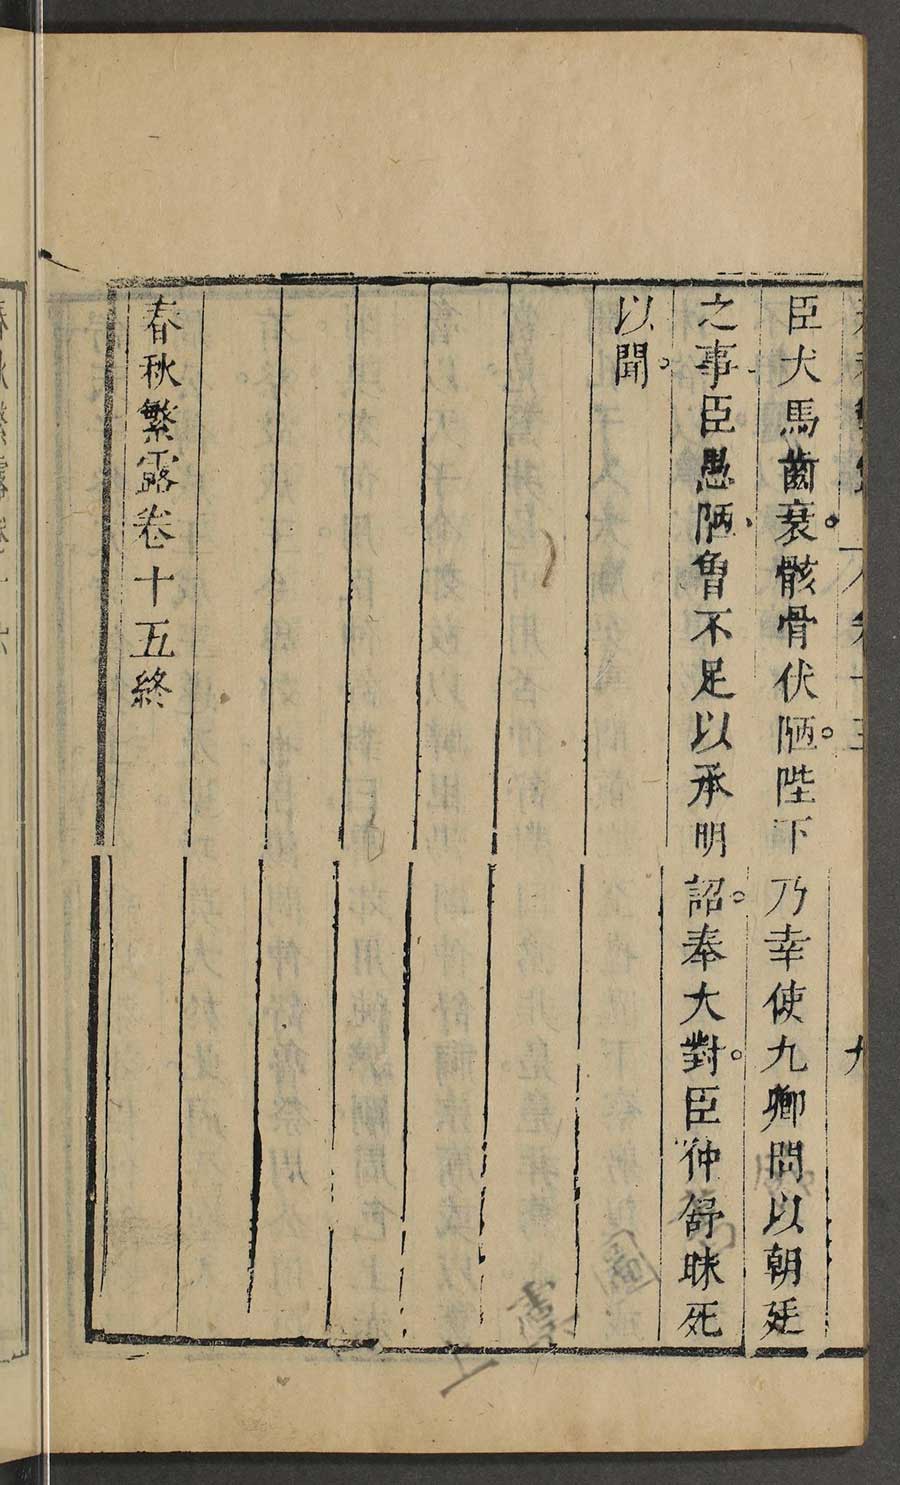 臣犬馬齒衰。骸骨伏陋。陛下乃幸使九卿問以朝廷
之事、臣愚陋、魯不足以承明詔。奉大對。臣仲舒昧死
以聞。
春秋繁露卷十五終